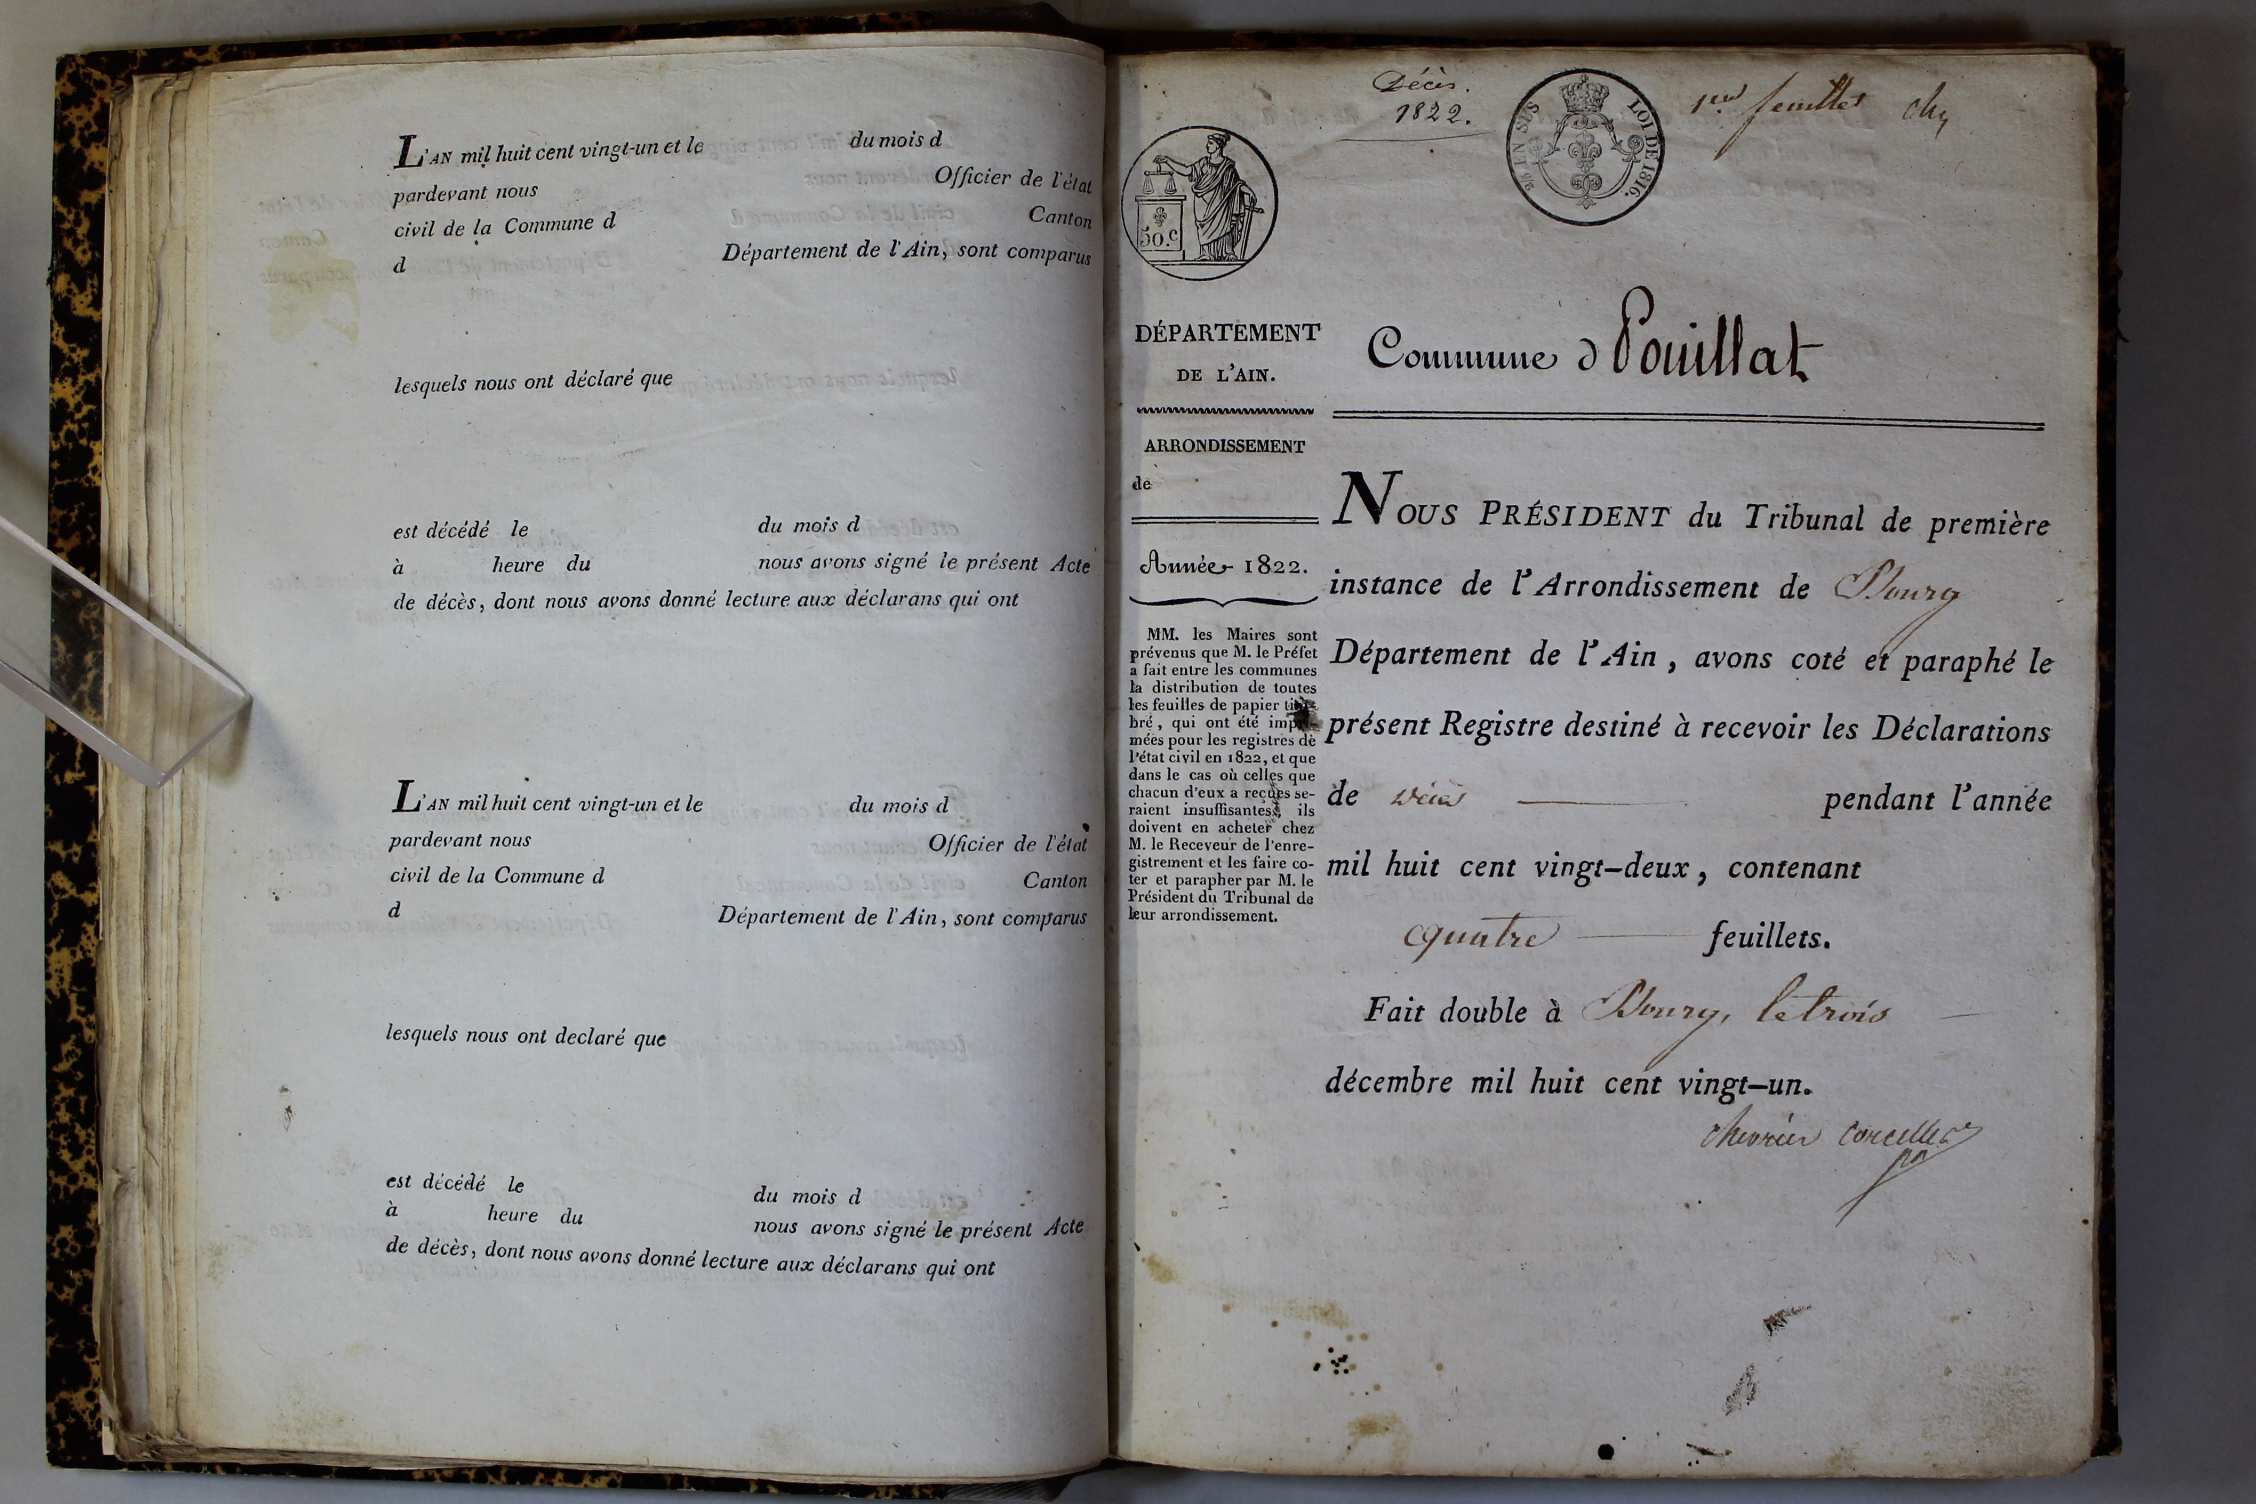 L'AN mil huit cent vingt-un et le du mois d
pardevant nous Officier de l'état
civil de la Commune d Canton
d Département de l'Ain, sont comparus
lesquels nous ont déclaré que
est décédé le du mois d
à heure du nous avons signé le présent Acte
de décès, dont nous avons donné lecture aux déclarans qui ont
L'AN mil huit cent vingt-un et le du mois d
pardevant nous Officier de l'état
civil de la Commune d Canton
d Département de l'Ain, sont comparus
lesquels nous ont declaré que
est décédé le du mois d
à heure du nous avons signé le présent Acte
de décès, dont nous avons donné lecture aux déclarans qui ont
Décès.
1822.
EN SUS
LOI DE 1816.
1er feuillet
50.c
DÉPARTEMENT
DE L'AIN.
ARRONDISSEMENT
de
Année 1822.
MM. les Maires sont
prévenus que M. le Préfet
a fait entre les communes
la distribution de toutes
les feuilles de papier tim-
bré, qui ont été impri-
mées pour les registres de
l'état civil en 1822, et que
dans le cas où celles que
chacun d'eux a reçues se-
raient insuffisantes, ils
doivent en acheter chez
M. le Receveur de l'enre-
gistrement et les faire co-
ter et parapher par M. le
Président du Tribunal de
leur arrondissement.
Commune d Pouillat
NOUS PRÉSIDENT du Tribunal de première
instance de l'Arrondissement de Bourg
Département de l'Ain, avons coté et paraphé le
présent Registre destiné à recevoir les Déclarations
de décès pendant l'année
mil huit cent vingt-deux, contenant
quatre feuillets.
Fait double à Bourg, le trois
décembre mil huit cent vingt-un.
chevrier corcelles